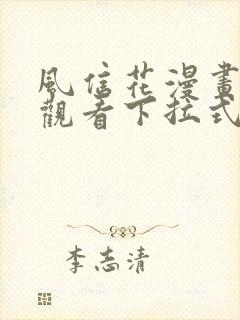 風信花漫畫
觀看下拉式
李志清